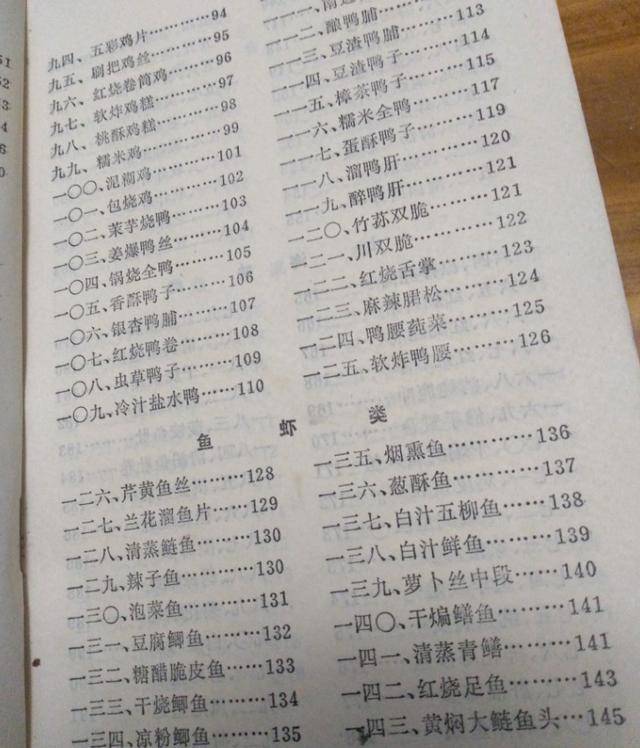 51
52
九四、五彩鸡片………94
九五、刷把鸡丝………95
九六、红烧卷筒鸡………96
九七、软炸鸡糕………97
九八、桃酥鸡糕………98
九九、糯米鸡………99
一〇〇、泥湖鸡………101
一〇一、包烧鸡………102
一〇二、茉芋烧鸭………103
一〇三、姜爆鸭丝………104
一〇四、锅烧全鸭………105
一〇五、香酥鸭子………106
一〇六、银杏鸭脯………107
一〇七、红烧鸭卷………108
一〇八、虫草鸭子………109
一〇九、冷汁盐水鸭………110
一一二、酿鸭脯………113
一一三、豆渣鸭脯………114
一一四、豆渣鸭子………115
一一五、樟茶鸭子………117
一一六、糯米全鸭………119
一一七、蛋酥鸭子………120
一一八、溜鸭肝………121
一一九、醉鸭肝………121
一二〇、竹荪双脆………122
一二一、川双脆………123
一二二、红烧舌掌………124
一二三、麻辣䐃松………125
一二四、鸭腰莼菜………126
一二五、软炸鸭腰………
鱼 虾 类
一二六、芹黄鱼丝………128
一二七、兰花溜鱼片………129
一二八、清蒸鲢鱼………130
一二九、辣子鱼………130
一三〇、泡菜鱼………131
一三一、豆腐鲫鱼………132
一三二、糖醋脆皮鱼………133
一三三、干烧鲫鱼………134
一三四、凉粉鲫鱼………135
一三五、烟熏鱼………136
一三六、葱酥鱼………137
一三七、白汁五柳鱼………138
一三八、白汁鲜鱼………139
一三九、萝卜丝中段………140
一四〇、干煸鳝鱼………141
一四一、清蒸青鳝………141
一四二、红烧足鱼………143
一四三、黄焖大鲢鱼头…145